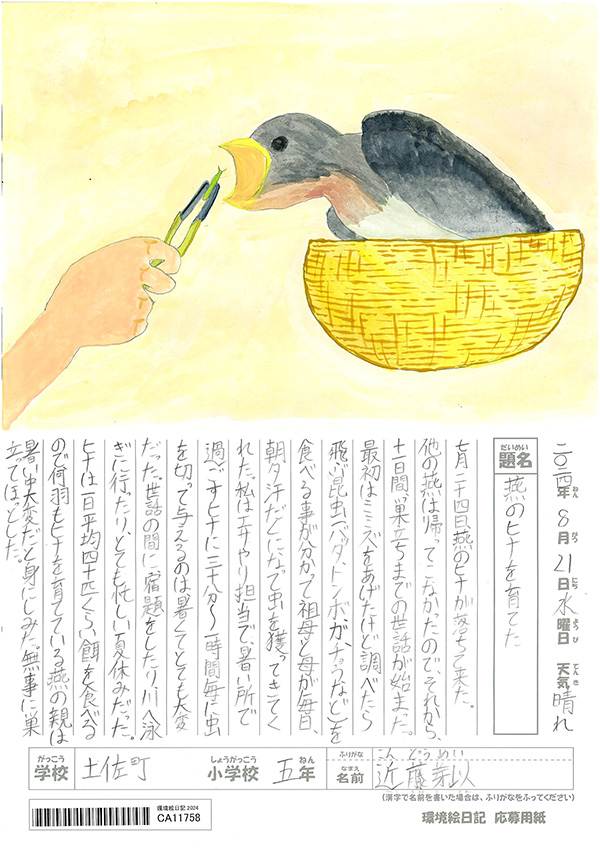 二〇二四年 8月 21日 水曜日 天気 晴れ
題名 燕のヒナを育てた
七月二十四日、燕のヒナが落ちて来た。
他の燕は帰ってこなかったので、それから、
十一日間、巣立ちまでの世話が始まった。
最初はミミズをあげたけど調べたら
飛ぶ昆虫(バッタ、トンボ、ガ、チョウなど)を
食べる事が分かって祖母と母が毎日、
朝夕汗だくになって虫を獲ってきてく
れた。私はエサやり担当で、暑い所で
過ごすヒナに三十分〜一時間毎に虫
を切って与えるのは暑くてとても大変
だった。世話の間に、宿題をしたり川へ泳
ぎに行ったり、とても忙しい夏休みだった。
ヒナは一日平均四十匹くらい餌を食べる
ので何羽もヒナを育てている燕の親は
暑い中大変だと身にしみた。無事に巣
立ってほっとした。
がっこう 学校 土佐町 しょうがっこう 小学校 五年 ねん ふりがな こんどうめい なまえ 名前 近藤芽以
(漢字で名前を書いた場合は、ふりがなをふってください)
環境絵日記2024
CA11758
環境絵日記 応募用紙